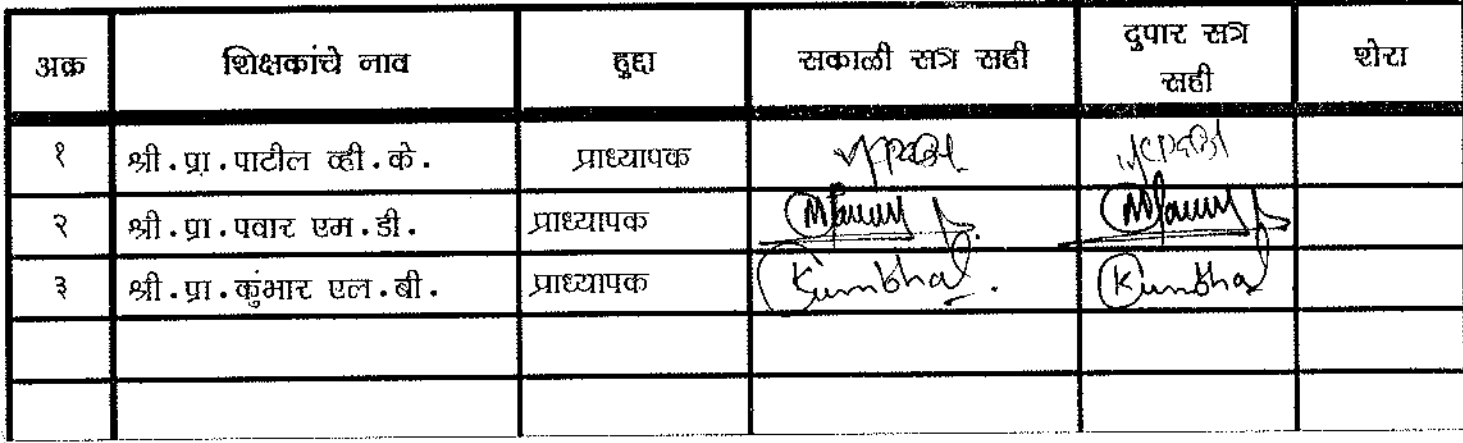 अक्र शिक्षकांचे नाव हुद्दा सकाळी सत्र सही दुपार सत्र सही शेरा
१ श्री.प्रा.पाटील व्ही.के. प्राध्यापक
२ श्री.प्रा.पवार एम.डी. प्राध्यापक
३ श्री.प्रा.कुंभार एल.बी. प्राध्यापक Kumbhar Kumbhar